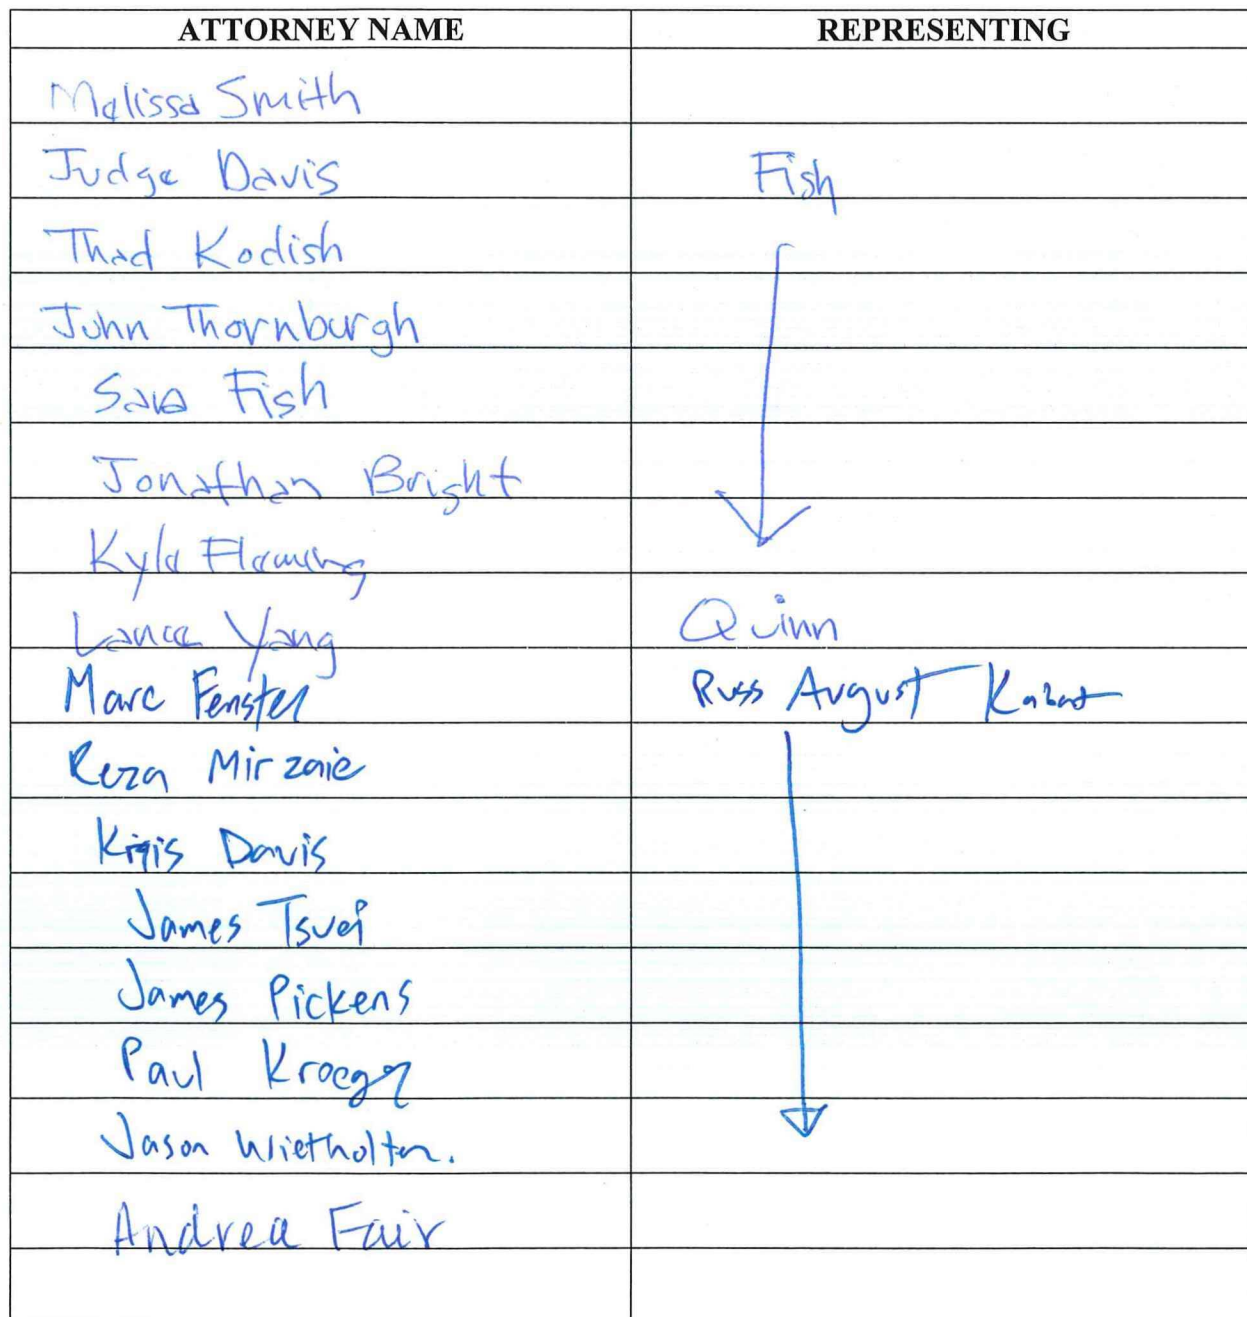 ATTORNEY NAME REPRESENTING
Melissa Smith
Judge Davis Fish
Thad Kodish
John Thornburgh
Sara Fish
Jonathan Bright
Kyle Fleming
Lance Yang Quinn
Marc Fenster Russ August Kabat
Reza Mirzaie
Davis
James Tsuei
James Pickens
Paul Kroeger
Jason Wietholter.
Andrea Fair